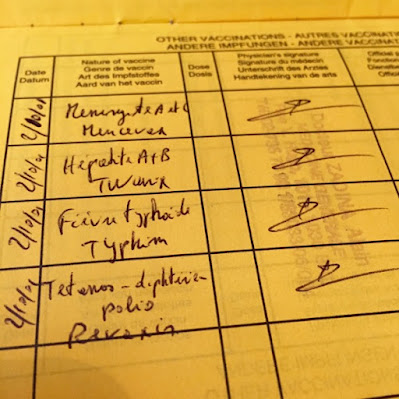 OTHER VACCINATIONS - AUTRES VACCINATI
ANDERE IMPFUNGEN - ANDERE VACCINAT
Date
Datum
Nature of vaccine
Genre de vaccin
Art des Impfstoffes
Aard van het vaccin
Dose
Dosis
Physician's signature
Signature du médecin
Unterschrift des Arztes
Handtekening van de arts
Official
Fonction
Dienstse
Offici
2/10/01
Meningite A et C
Mencevax
2/10/01
Hépatite A+B
Twinrix
2/10/01
Fièvre typhoïde
Typhim
2/10/01
Tetanos - diphtérie
polio
Revaxis
ZADINA Alain